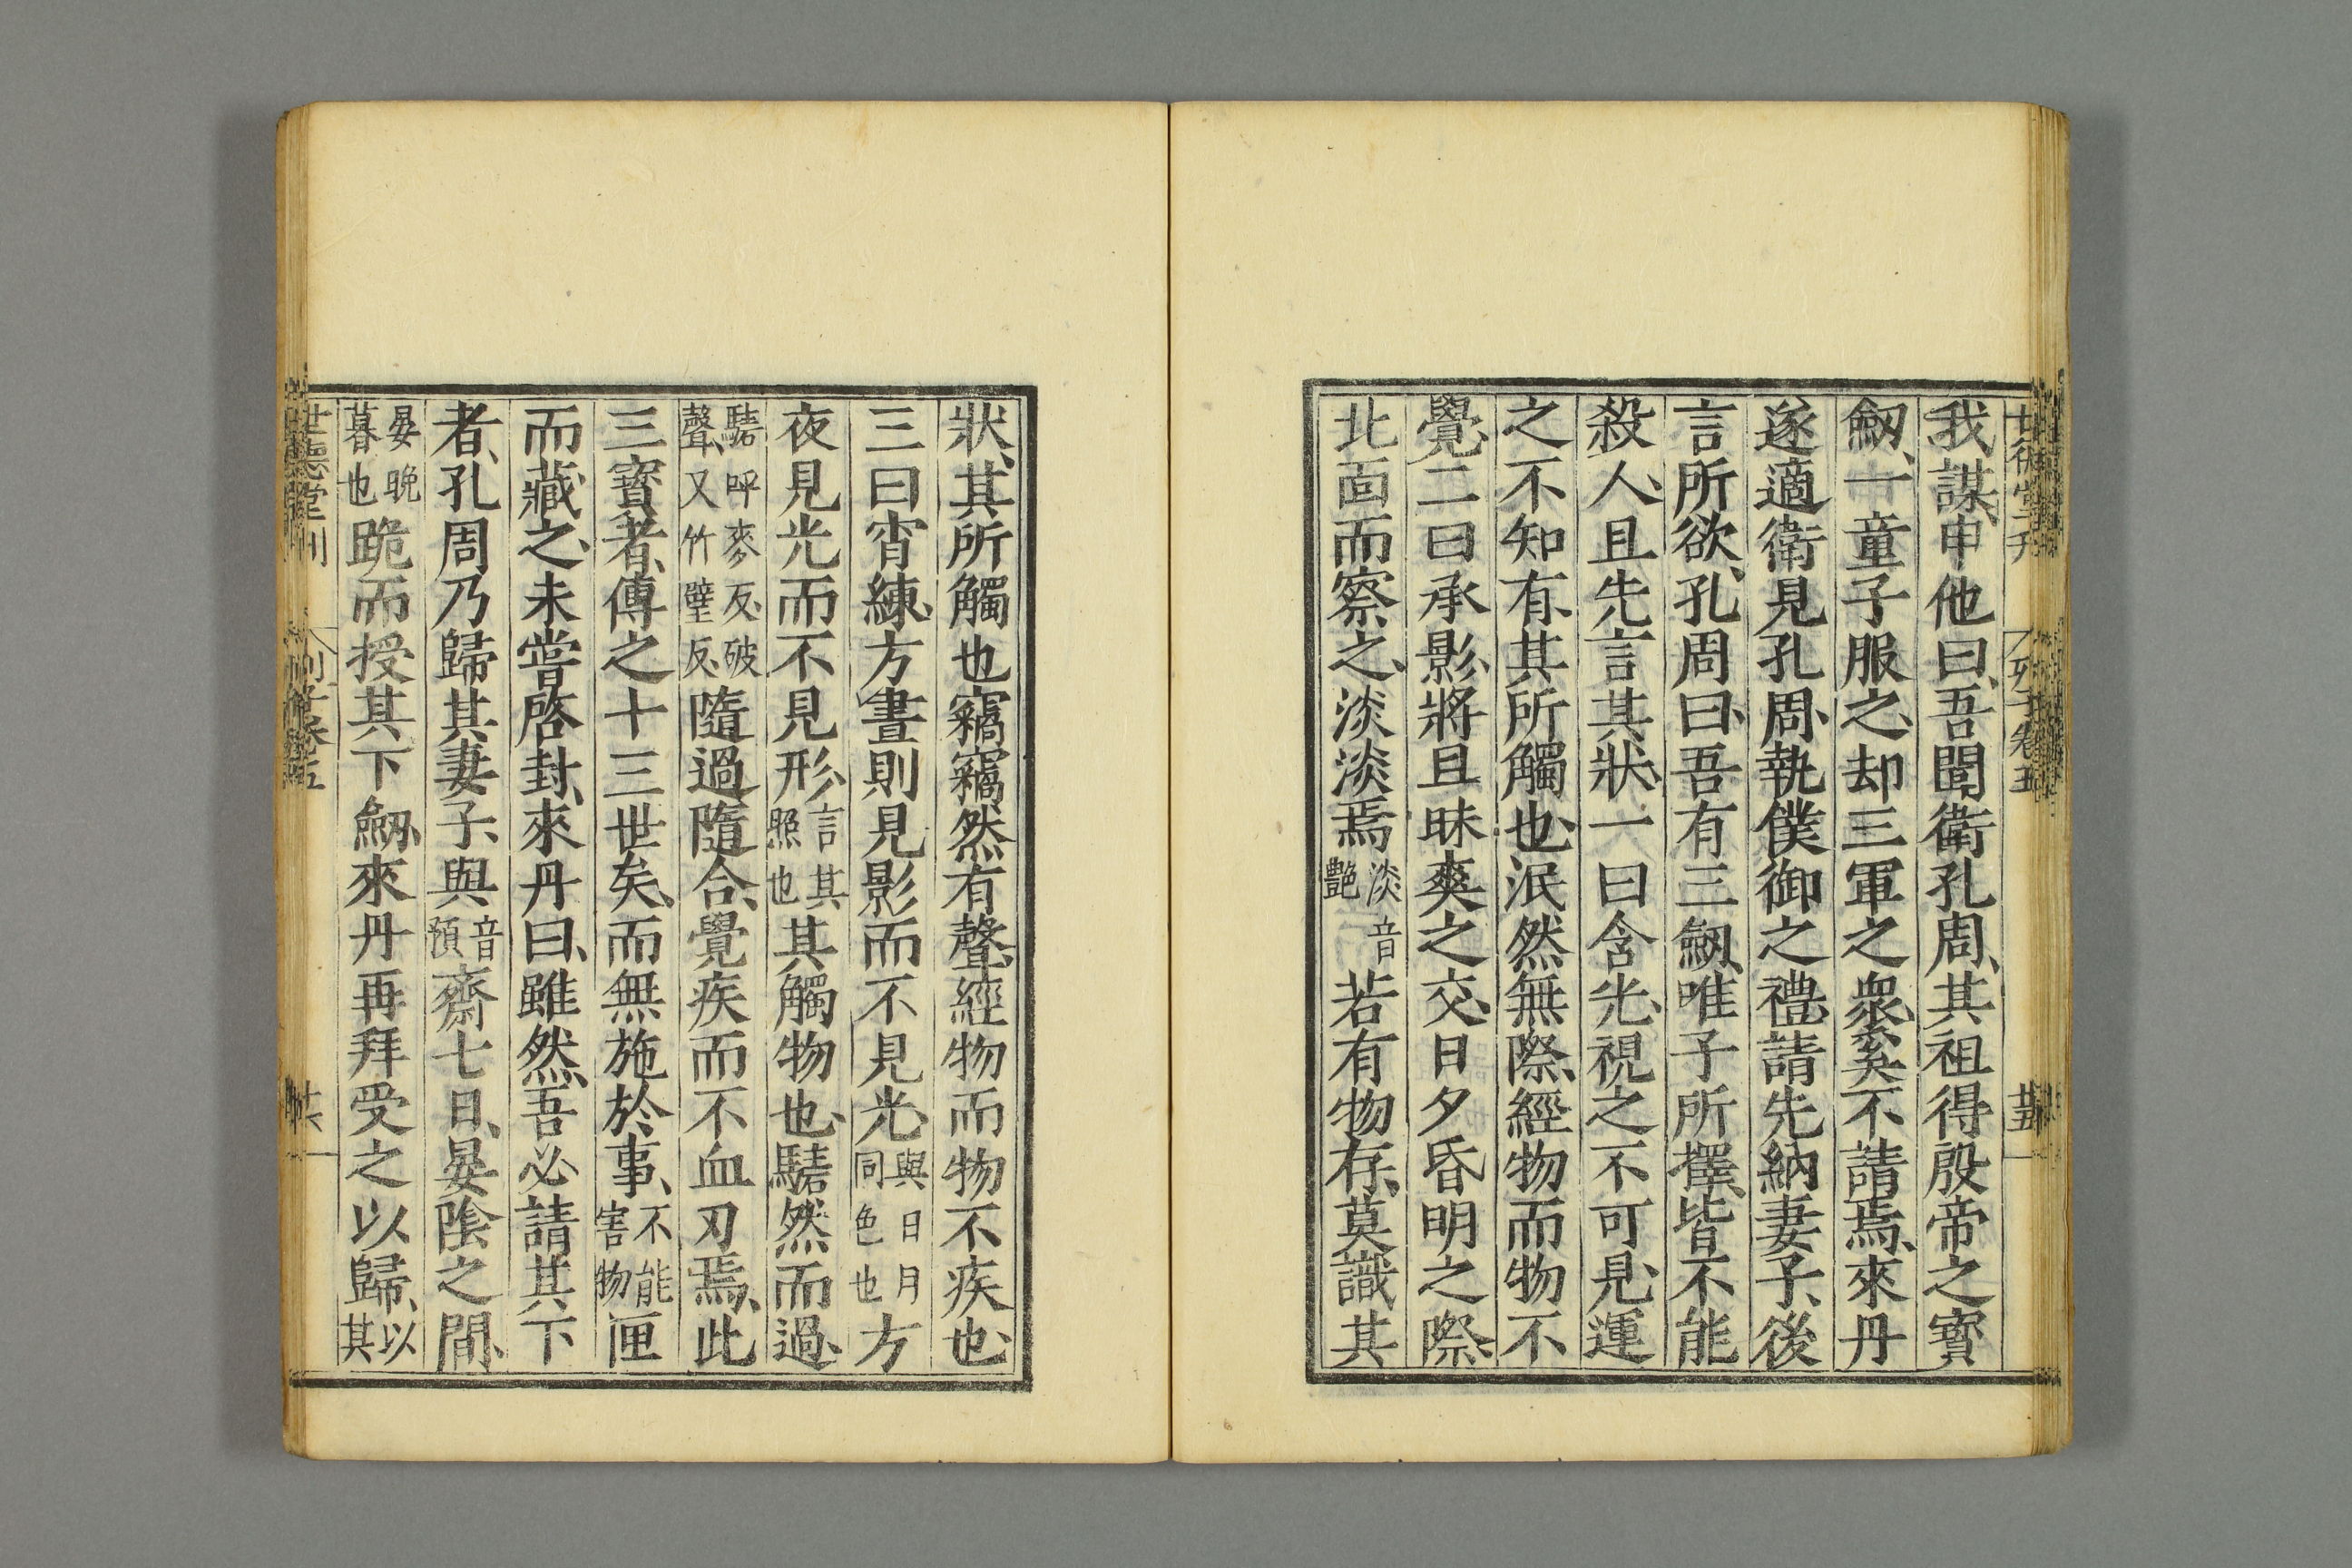 世德堂刊 列子卷五 廿五
我謀申他曰吾聞衛孔周其祖得殷帝之寶
劔一童子服之却三軍之衆奚不請焉來丹
遂適衛見孔周執僕御之禮請先納妻子後
言所欲孔周曰吾有三劔唯子所擇皆不能
殺人且先言其狀一曰含光視之不可見運
之不知有其所觸也泯然無際經物而物不
覺二曰承影將且昧爽之交日夕昏明之際
北面而察之淡淡焉淡音艷若有物存莫識其
狀其所觸也竊竊然有聲經物而物不疾也
三曰宵練方晝則見影而不見光與日月同色也方
夜見光而不見形言其照也其觸物也騞然而過
騞呼麥反破聲又竹壁反隨過隨合覺疾而不血刃焉此
三寶者傳之十三世矣而無施於事不能害物匣
而藏之未嘗啓封來丹曰雖然吾必請其下
者孔周乃歸其妻子與音預齋七日晏陰之間
晏晚暮也跪而授其下劔來丹再拜受之以歸以其
世德堂刊 列子卷五 廿六